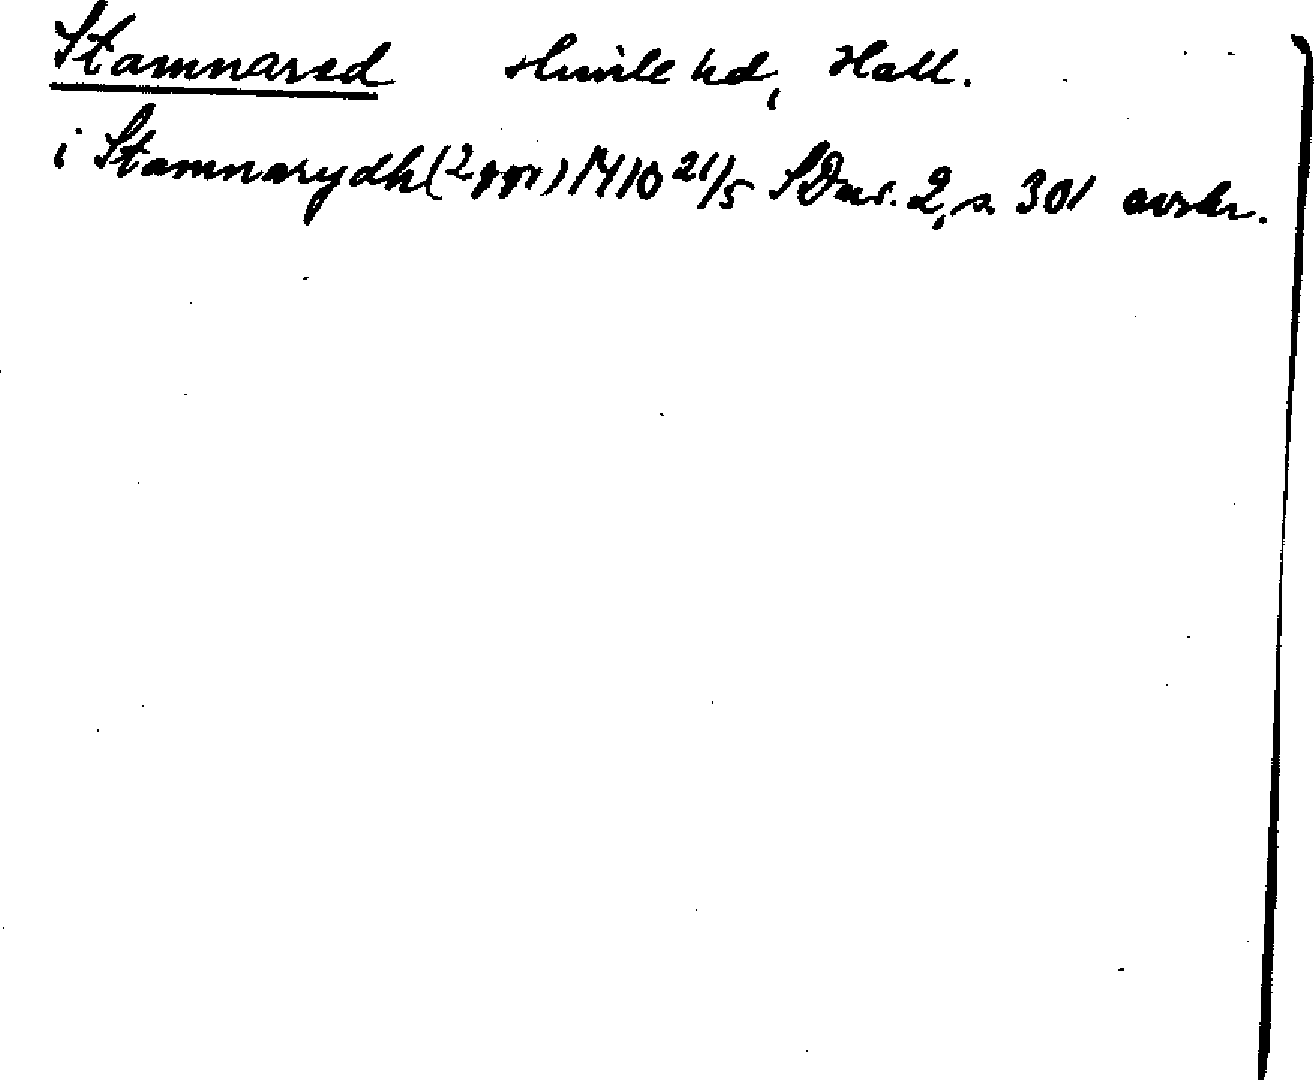 Stamnared Himle hd, Hall.
i Stamnarydh (2 ggr) 1410 21/5 SDns. 2, s. 301 avskr.